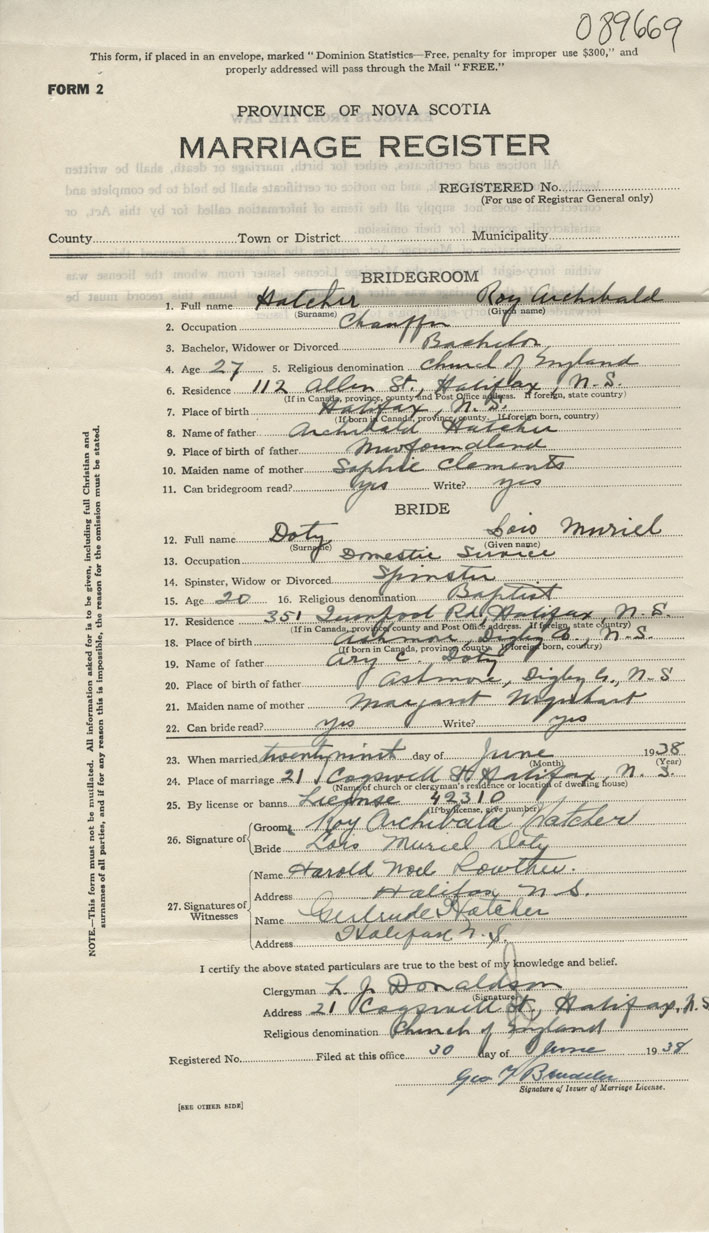 089669
This form, if placed in an envelope, marked "Dominion Statistics—Free. penalty for improper use $300," and
properly addressed will pass through the Mail "FREE."
FORM 2
PROVINCE OF NOVA SCOTIA
MARRIAGE REGISTER
REGISTERED No.
(For use of Registrar General only)
County Town or District Municipality
BRIDEGROOM
1. Full name Hatcher Roy Archibald
(Surname) (Given name)
2. Occupation
3. Bachelor, Widower or Divorced Bachelor
4. Age 27 5. Religious denomination Church of England
6. Residence 112 Allen St., Halifax, N.S.
(If in Canada, province, county and Post Office address. If foreign, state country)
7. Place of birth Halifax, N.S.
(If born in Canada, province, county. If foreign born, country)
8. Name of father Archibald Hatcher
9. Place of birth of father Newfoundland
10. Maiden name of mother Sophie Clements
11. Can bridegroom read? yes Write? yes
BRIDE
12. Full name Doty Lois Muriel
(Surname) (Given name)
13. Occupation Domestic Service
14. Spinster, Widow or Divorced Spinster
15. Age 20 16. Religious denomination Baptist
17. Residence 351 Quinpool Rd, Halifax, N.S.
(If in Canada, province, county and Post Office address. If foreign, state country)
18. Place of birth Ashmore, Digby Co., N.S.
(If born in Canada, province, county. If foreign born, country)
19. Name of father C. Doty
20. Place of birth of father Ashmore, Digby Co., N.S
21. Maiden name of mother Margaret Urquhart
22. Can bride read? yes Write? yes
23. When married day of June 1938
(Month) (Year)
24. Place of marriage 21 Cogswell St Halifax, N.S.
(Name of church or clergyman's residence or location of dwelling house)
25. By license or banns License 42310
(If by license, give number)
26. Signature of Groom Roy Archibald Hatcher
Bride Lois Muriel Doty
27. Signatures of Witnesses
Name Harold Noel Lowther.
Address Halifax N.S.
Name Gertrude Hatcher
Address Halifax N.S.
I certify the above stated particulars are true to the best of my knowledge and belief.
Clergyman L. J. Donaldson
(Signature)
Address 21 Cogswell St, Halifax, N.S
Religious denomination Church of England
Registered No. Filed at this office 30 day of June 1938
Geo
Signature of Issuer of Marriage License.
[SEE OTHER SIDE]
NOTE.—This form must not be mutilated. All information asked for is to be given, including full Christian and
surnames of all parties, and if for any reason this is impossible, the reason for the omission must be stated.